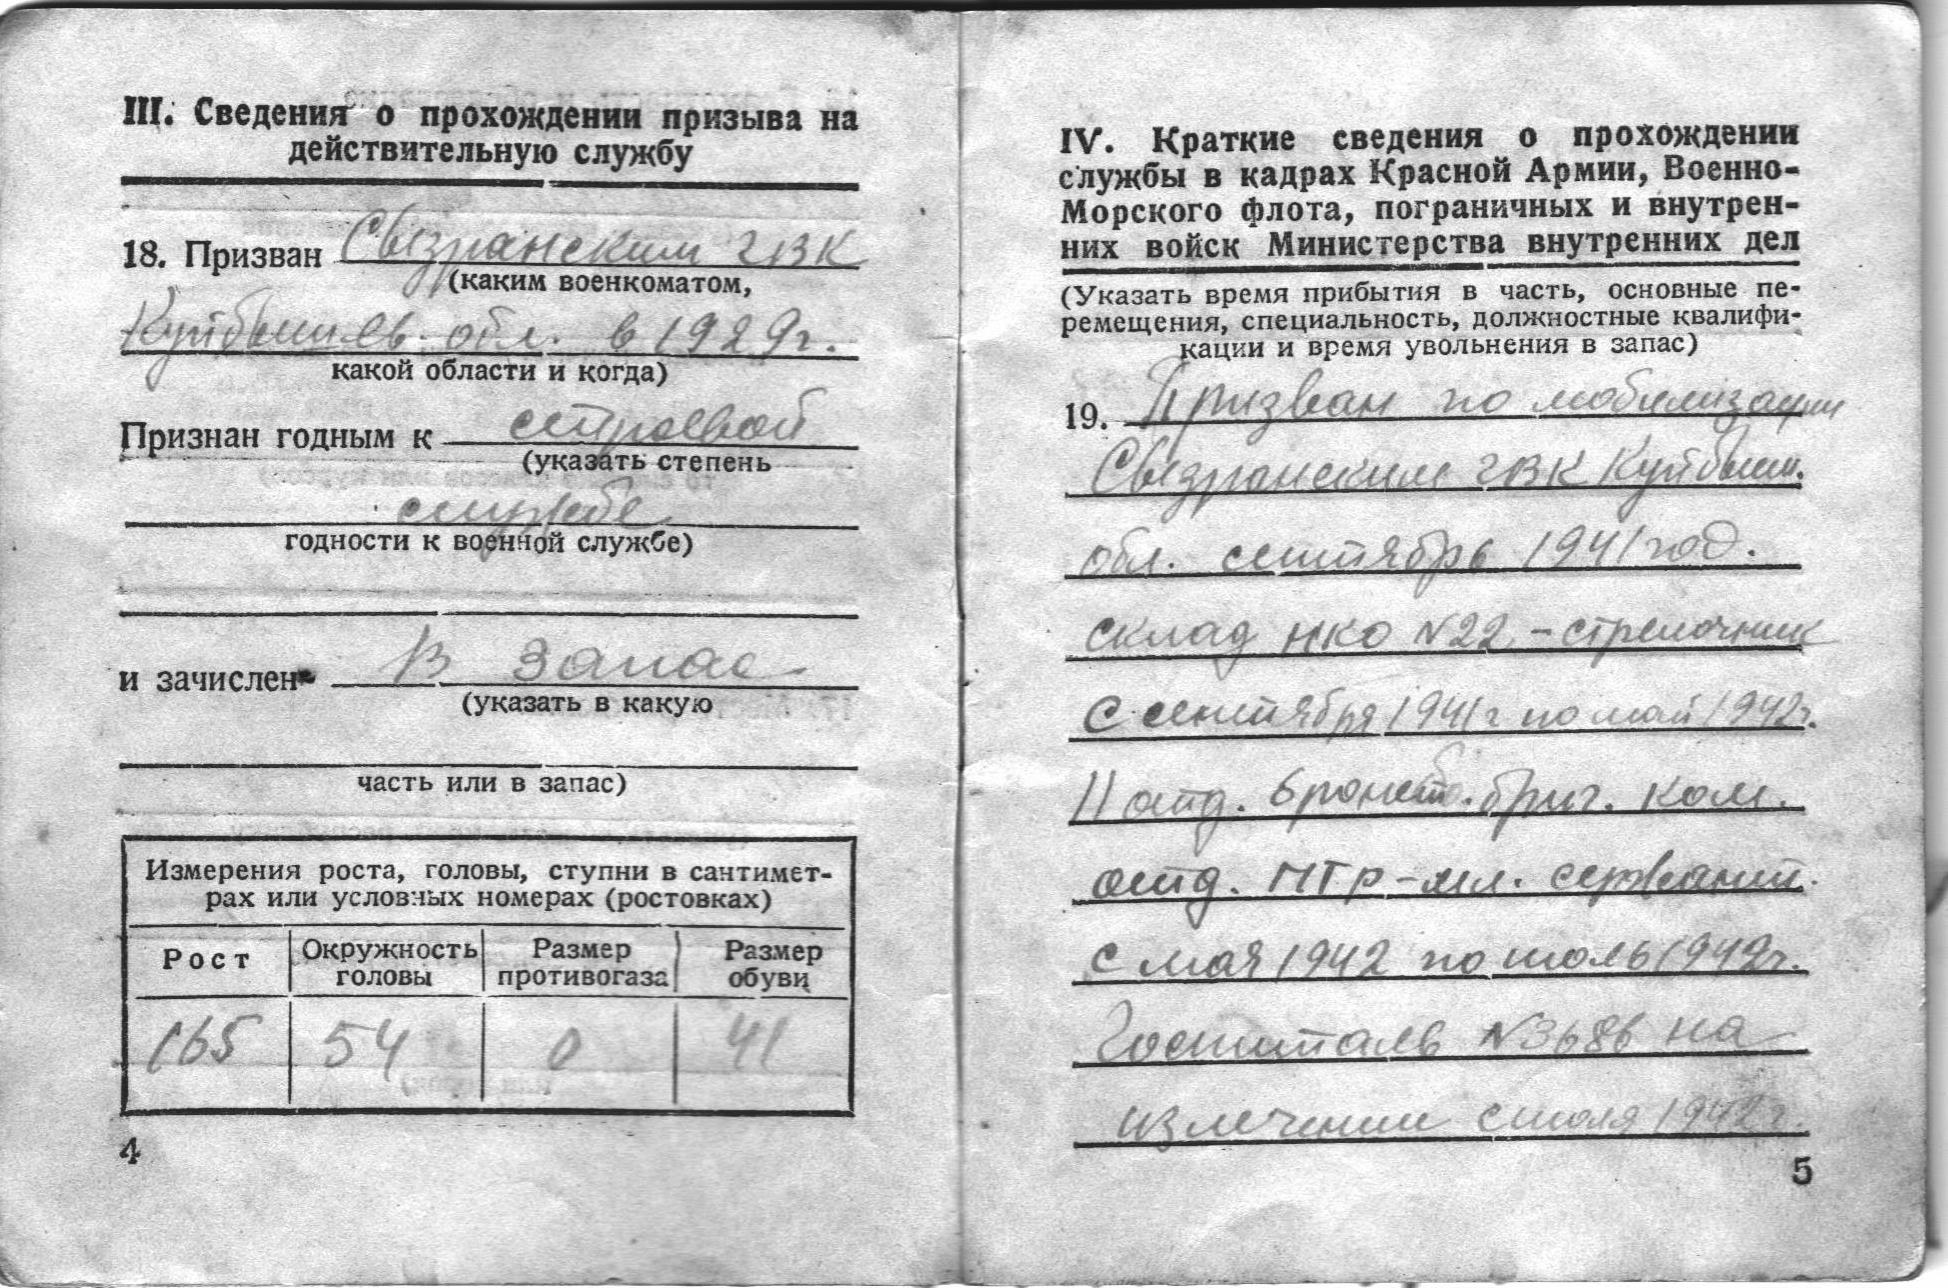 III. Сведения о прохождении призыва на
действительную службу
18. Призван Сызранским ГВК
(каким военкоматом,
Куйбышев. обл. в 1929г.
какой области и когда)
Признан годным к строевой
(указать степень
службе
годности к военной службе)
и зачислен В запас
(указать в какую
часть или в запас)
Измерения роста, головы, ступни в сантимет-
рах или условных номерах (ростовках)
Рост Окружность головы Размер противогаза Размер обуви
165 54 0 41
4
IV. Краткие сведения о прохождении
службы в кадрах Красной Армии, Военно-
Морского флота, пограничных и внутрен-
них войск Министерства внутренних дел
(Указать время прибытия в часть, основные пе-
ремещения, специальность, должностные квалифи-
кации и время увольнения в запас)
19. Призван по мобилизации
Сызранским ГВК Куйбыш.
обл. сентябрь 1941 год.
склад НКО №22 - стрелочник
с сентября 1941г по май 1942г.
11 отд. бриг. ком.
отд. ПТР - мл. сержант.
с мая 1942 по июль 1942г.
Госпиталь №3686 на
излечении с июля 1942г.
5